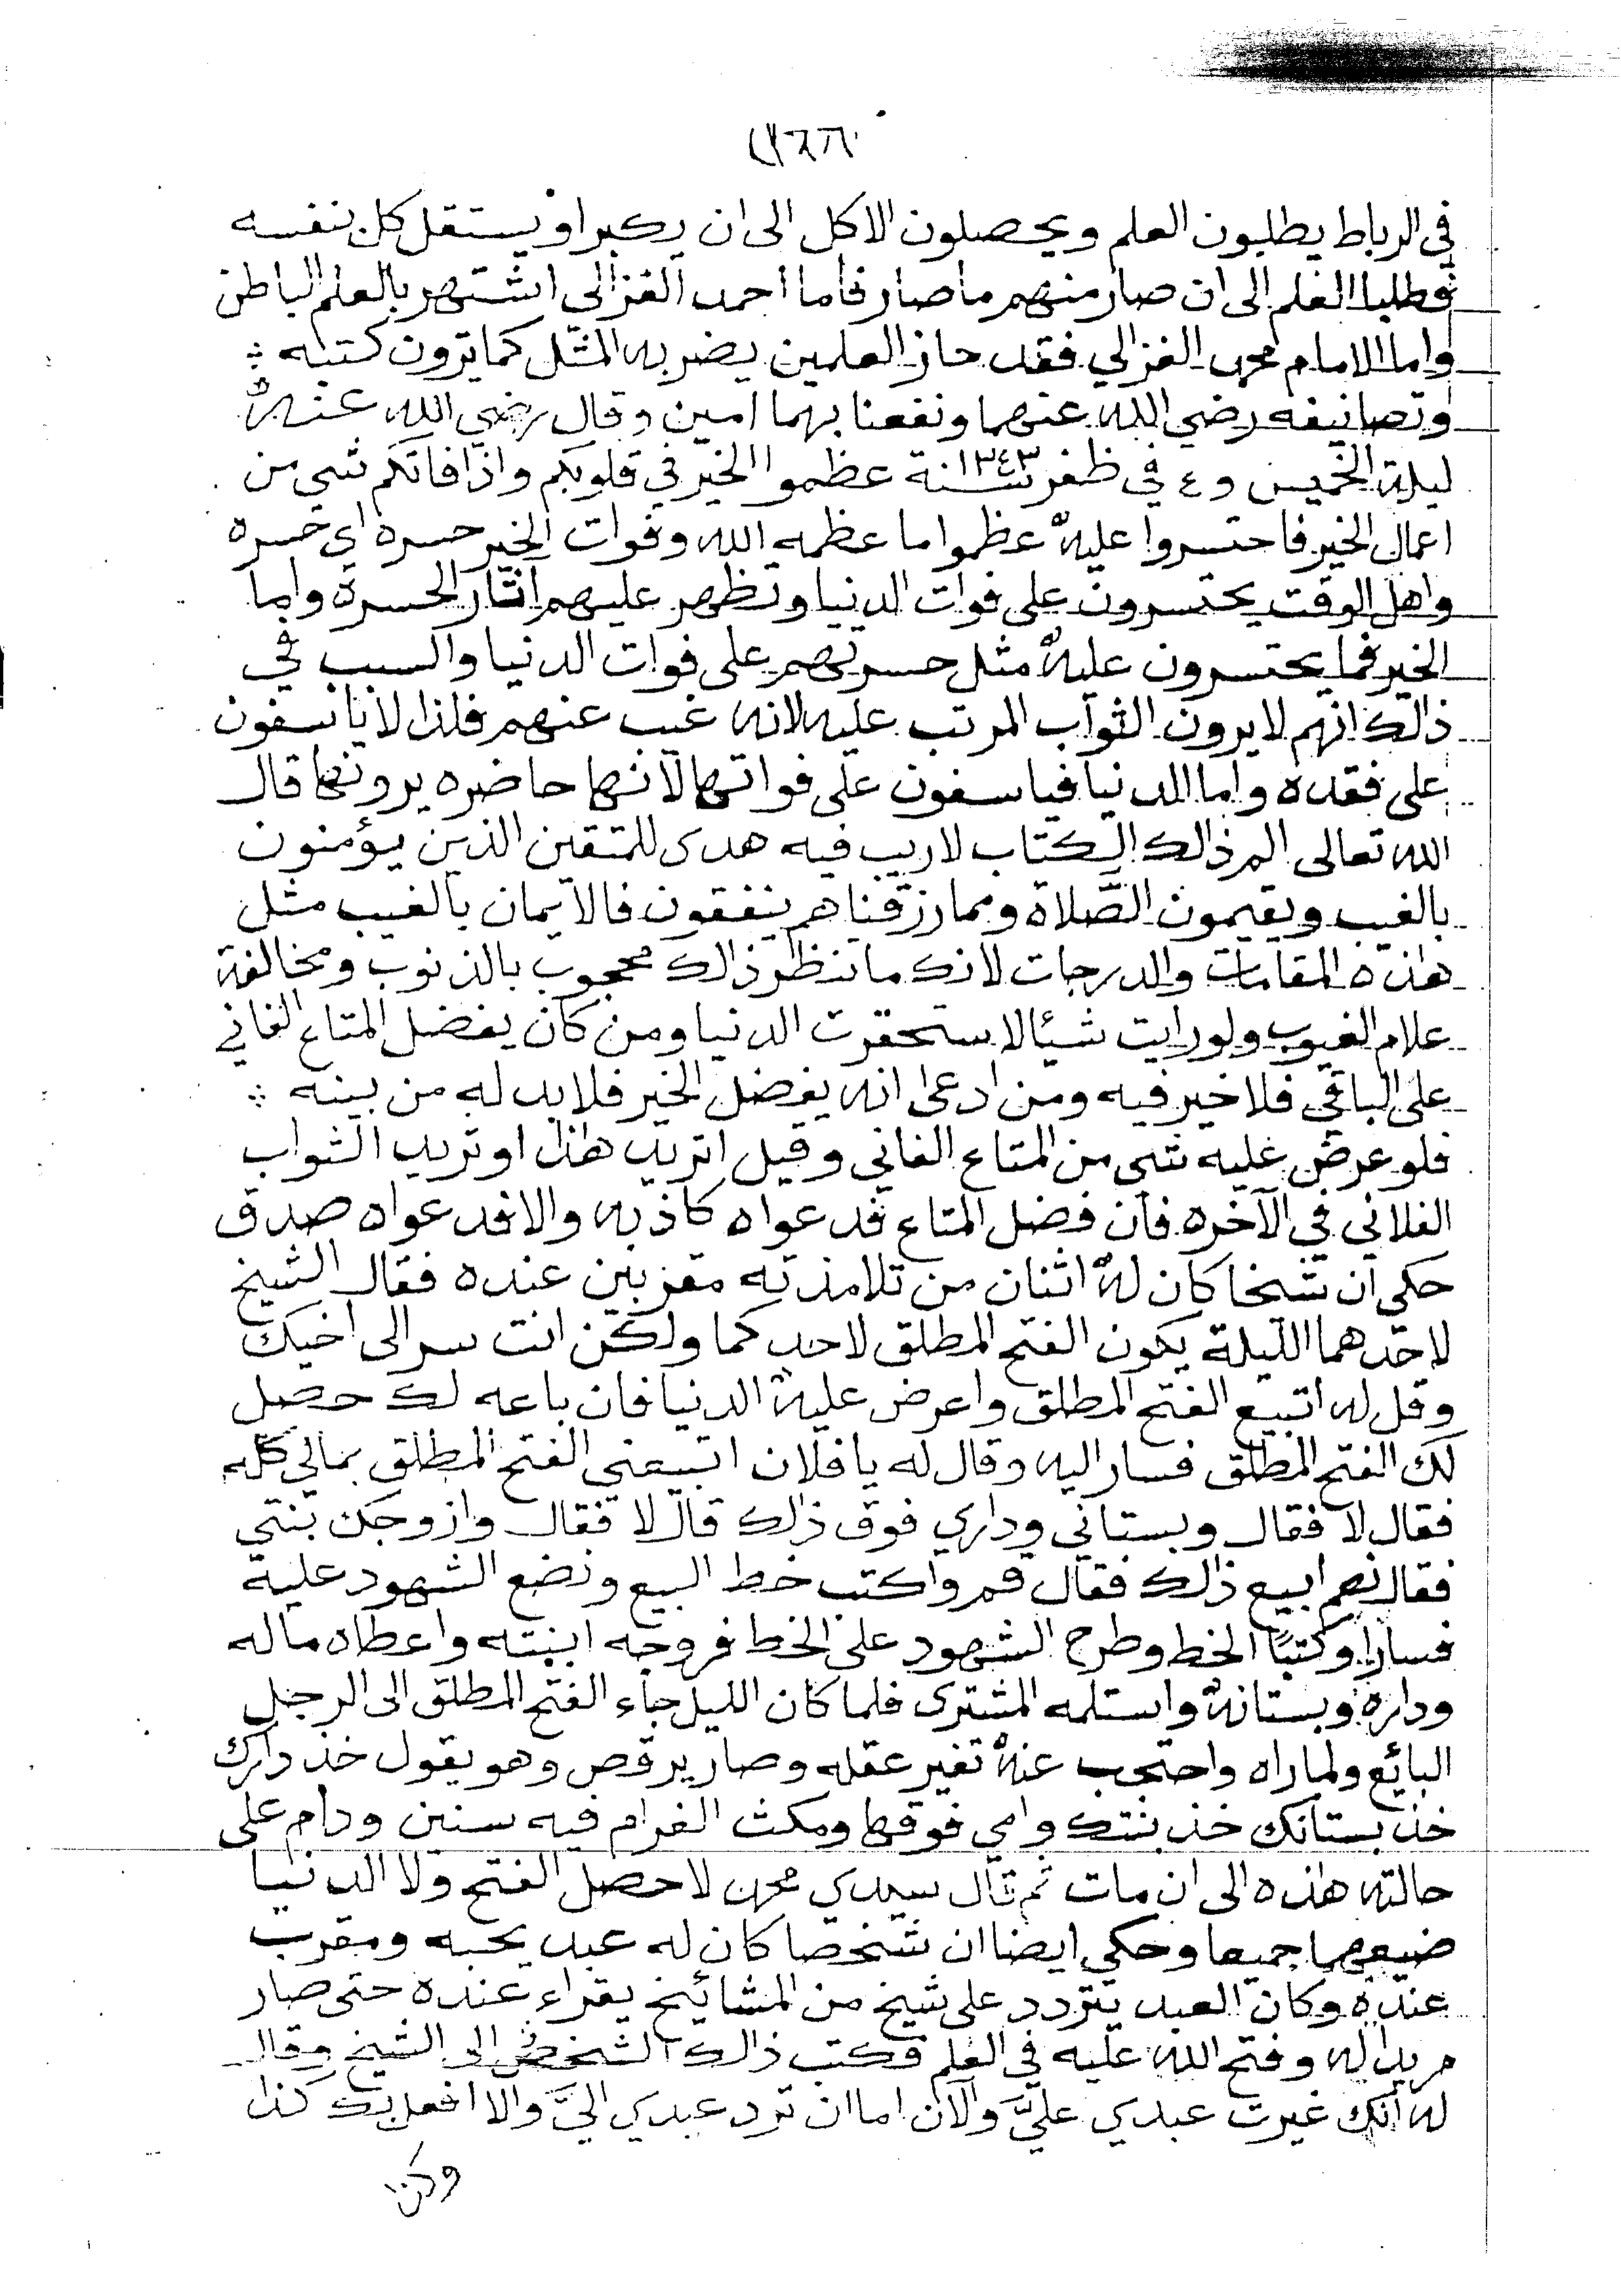 (٢٦٦)
في الرباط يطلبون العلم ويحصلون الاكل الى ان يكبر او يستقل كل بنفسه
فطلبا العلم الى ان صار منهم ما صار فاما احمد الغزالى اشتهر بالعلم الباطن
واما الامام محمد الغزالي فقد حاز العلمين يضرب به المثل كما ترون كتبه
وتصانيفه رضي الله عنهما ونفعنا بهما امين وقال رضي الله عنه
ليلة الخميس و٤ في ظفر سنة ١٣٤٣ عظموا الخير في قلوبكم واذا فاتكم شي من
اعمال الخير فاحتسروا عليه عظموا ما عظمه الله وفوات الخير حسره اي حسره
واهل الوقت يحتسرون على فوات الدنيا وتظهر عليهم آثار الحسرة واما
الخير فما يحتسرون عليه مثل حسرتهم على فوات الدنيا والسبب في
ذالك انهم لا يرون الثواب المرتب عليه لانه غيب عنهم فلذا لا يأسفون
على فقده واما الدنيا فياسفون على فواتها لانها حاضره يرونها قال
الله تعالى الم ذالك الكتاب لا ريب فيه هدى للمتقين الذين يؤمنون
بالغيب ويقيمون الصَّلاة ومما رزقناهم ينفقون فالايمان بالغيب مثل
هاذه المقامات والدرجات لانك ما تنظر ذالك محجوب بالذنوب ومخالفة
علام الغيوب ولو رايت شيئا لاستحقرت الدنيا ومن كان يفضل المتاع الفاني
على الباقي فلا خير فيه ومن ادعى انه يفضل الخير فلا بد له من بينه
فلو عرض عليه شي من المتاع الفاني وقيل اتريد هاذا او تريد الثواب
الفلاني في الآخره فان فضل المتاع فدعواه كاذبه والا فدعواه صدق
حكي ان شيخا كان له اثنان من تلامذته مقربين عنده فقال الشيخ
لاحدهما الليلة يكون الفتح المطلق لاحدكما ولكن انت سر الى اخيك
وقل له اتبيع الفتح المطلق واعرض عليه الدنيا فان باعه لك حصل
لك الفتح المطلق فسار اليه وقال له يا فلان اتبيعني الفتح المطلق بمالي كله
فقال لا فقال وبستاني وداري فوق ذالك قال لا فقال وازوجك بنتي
فقال نعم ابيع ذالك فقال قم واكتب خط البيع ونضع الشهود عليه
فسارا وكتبا الخط وطرح الشهود على الخط فزوجه ابنته واعطاه ماله
وداره وبستانه واستلمه المشترى فلما كان الليل جاء الفتح المطلق الى الرجل
البائع ولما راه واحتجب عنه تغير عقله وصار يرقص وهو يقول خذ دارك
خذ بستانك خذ بنتك وامي فوقها ومكث الغرام فيه سنين ودام على
حالته هاذه الى ان مات ثم قال سيدي محمد لا حصل الفتح ولا الدنيا
ضيعهما جميعا وحكي ايضا ان شخصا كان له عبد يحبه ومقرب
عنده وكان العبد يتردد على شيخ من المشائيخ يقراء عنده حتى صار
مريدا له وفتح الله عليه في العلم فكتب ذالك الشخص الى الشيخ وقال
له انك غيرت عبدي عليَّ والآن اما ان ترد عبدي اليَّ والا افعل بك كذا
وكذا